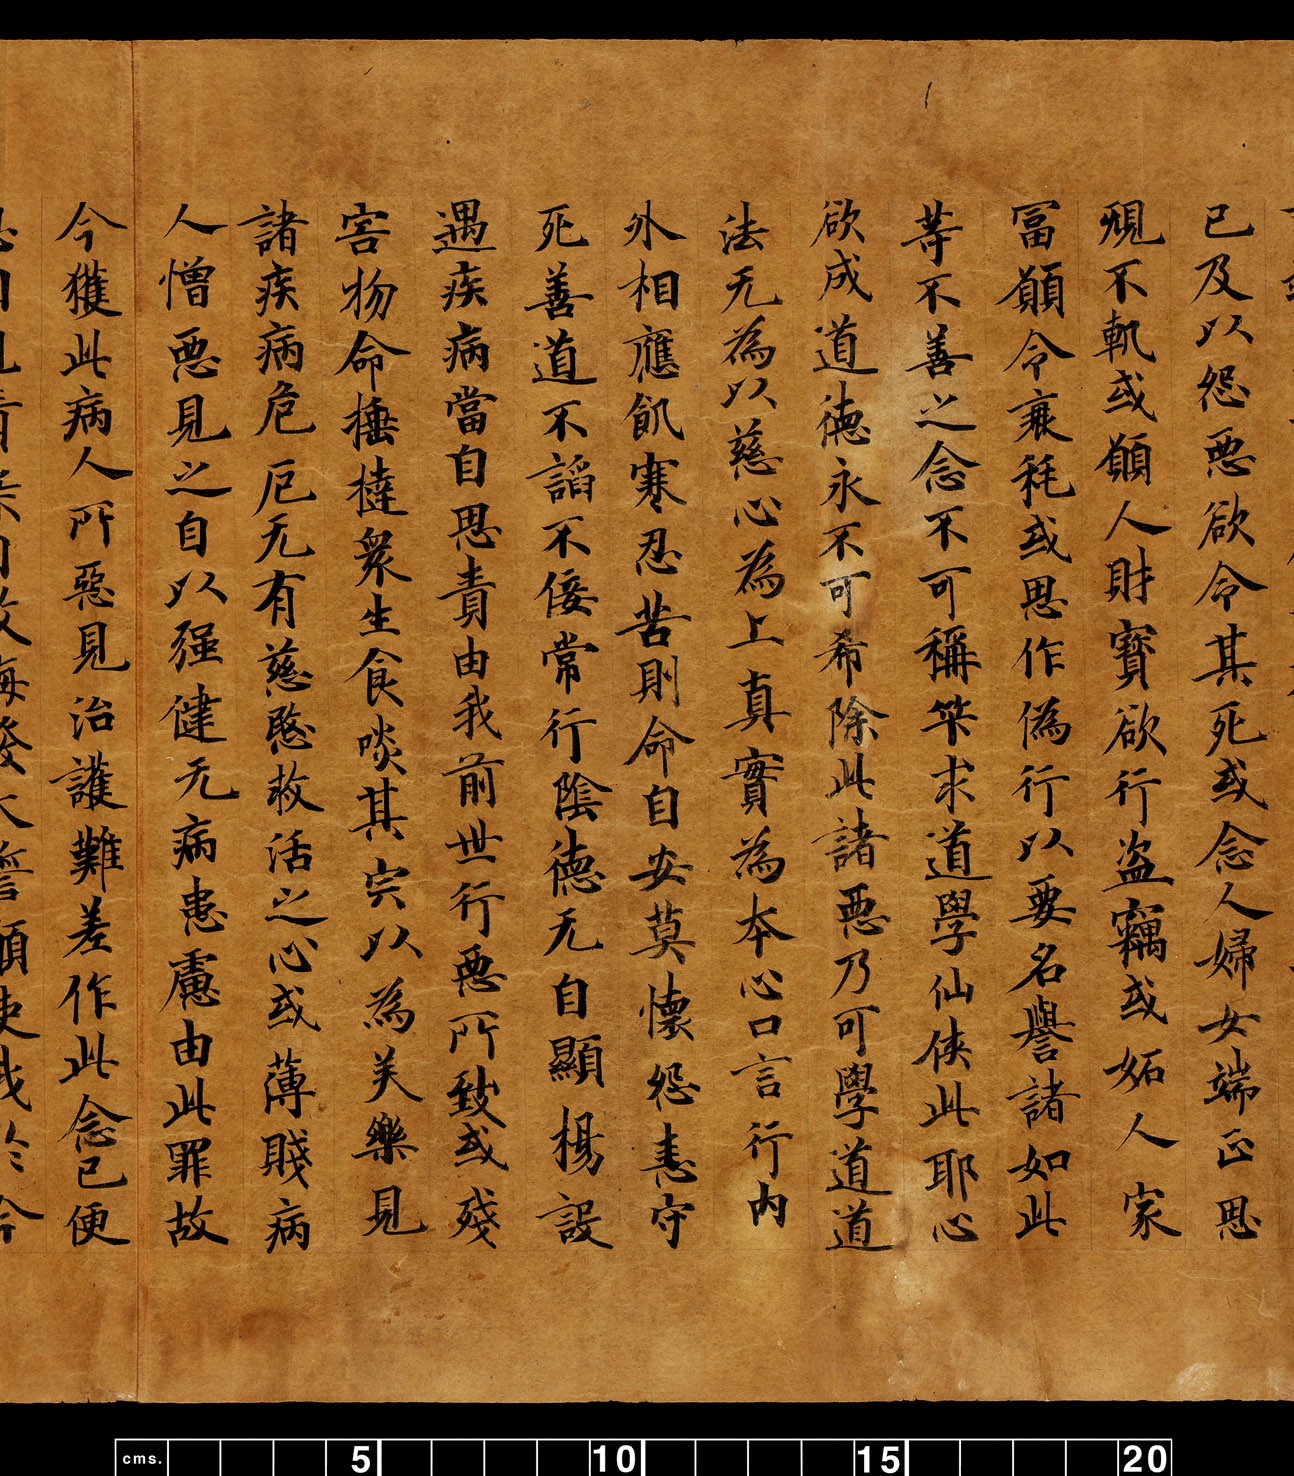 已及以怨惡欲令其死或念人婦女端正思
覬不軌或願人財寶欲行盜竊或妬人家
冨願令衰秏或思作偽行以要名譽諸如此
等不善之念不可稱筭求道學仙俠此耶心
欲成道德永不可希除此諸惡乃可學道道
法无為以慈心為上真實為本心口言行内
外相應飢寒忍苦則命自安莫懷怨恚守
死善道不諂不佞常行陰德无自顯楊設
遇疾病當自思責由我前世行惡所致或殘
害物命捶撻衆生食啖其宍以為美樂見
諸疾病危厄无有慈愍救活之心或薄賤病
人憎惡見之自以强健无病患慮由此罪故
今獲此病人所惡見治護難差作此念已便
cms. 5 10 15 20